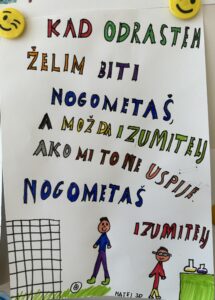 KAD ODRASTEM
ŽELIM BITI
NOGOMETAŠ,
A MOŽDA IZUMITELJ
AKO MI TO NE USPIJE.
NOGOMETAŠ
IZUMITELJ
MATEJ 3D